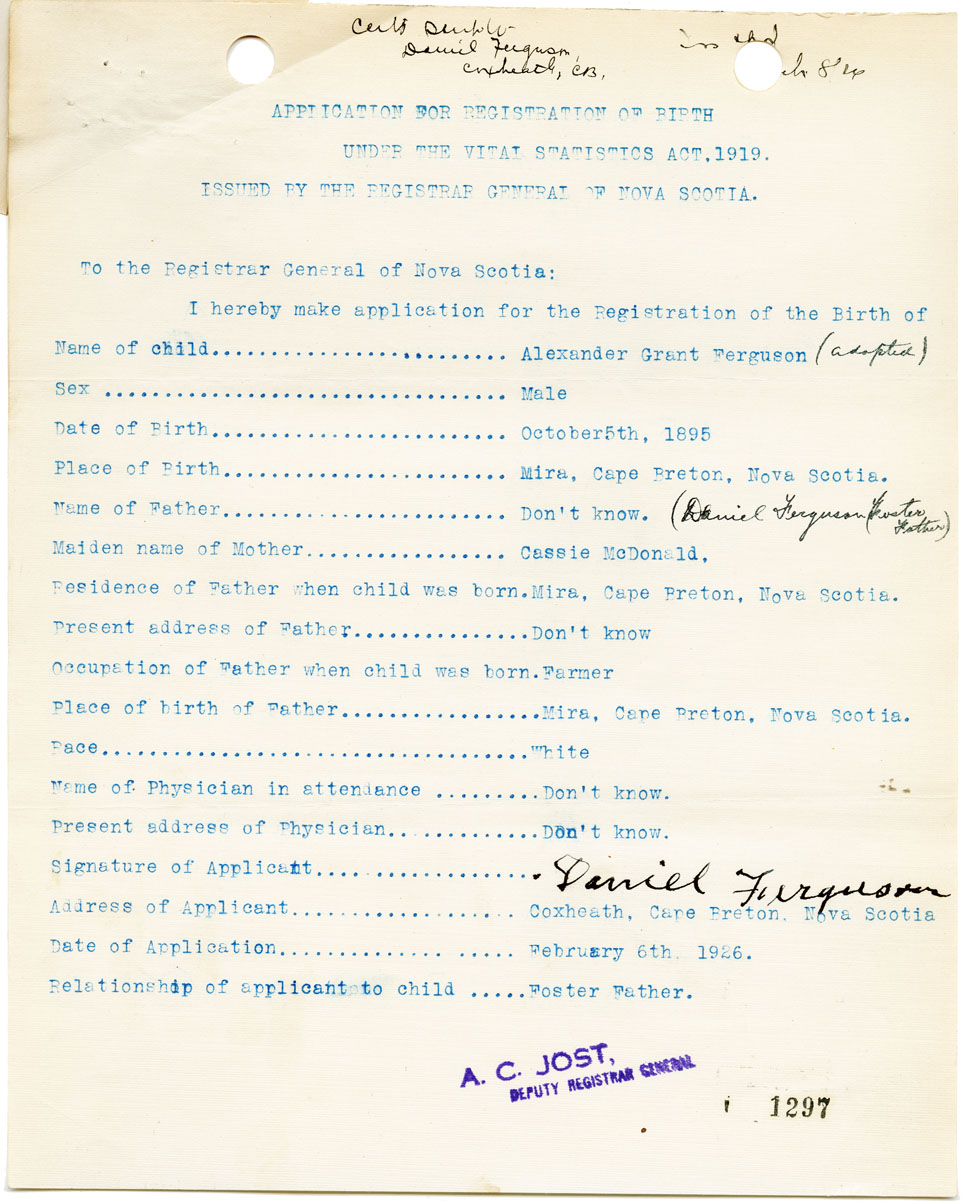 Daniel Ferguson
Coxheath, C.B.
APPLICATION FOR REGISTRATION OF BIRTH
UNDER THE VITAL STATISTICS ACT,1919.
ISSUED BY THE REGISTRAR GENERAL OF NOVA SCOTIA.
To the Registrar General of Nova Scotia:
I hereby make application for the Registration of the Birth of
Name of child.............................. Alexander Grant Ferguson (adopted)
Sex .................................. Male
Date of Birth.............................. October5th, 1895
Place of Birth............................. Mira, Cape Breton, Nova Scotia.
Name of Father............................. Don't know. (Daniel Ferguson (Foster
Father)
Maiden name of Mother.................... Cassie McDonald,
Residence of Father when child was born.Mira, Cape Breton, Nova Scotia.
Present address of Father................Don't know
Occupation of Father when child was born.Farmer
Place of birth of Father..................Mira, Cape Breton, Nova Scotia.
Race.....................................White
Name of Physician in attendance .........Don't know.
Present address of Physician.............Don't know.
Signature of Applicant.................... Daniel Ferguson
Address of Applicant.................... Coxheath, Cape Breton, Nova Scotia
Date of Application............... ..... February 6th, 1926.
Relationship of applicant to child .....Foster Father.
A. C. JOST,
DEPUTY REGISTRAR GENERAL
1297